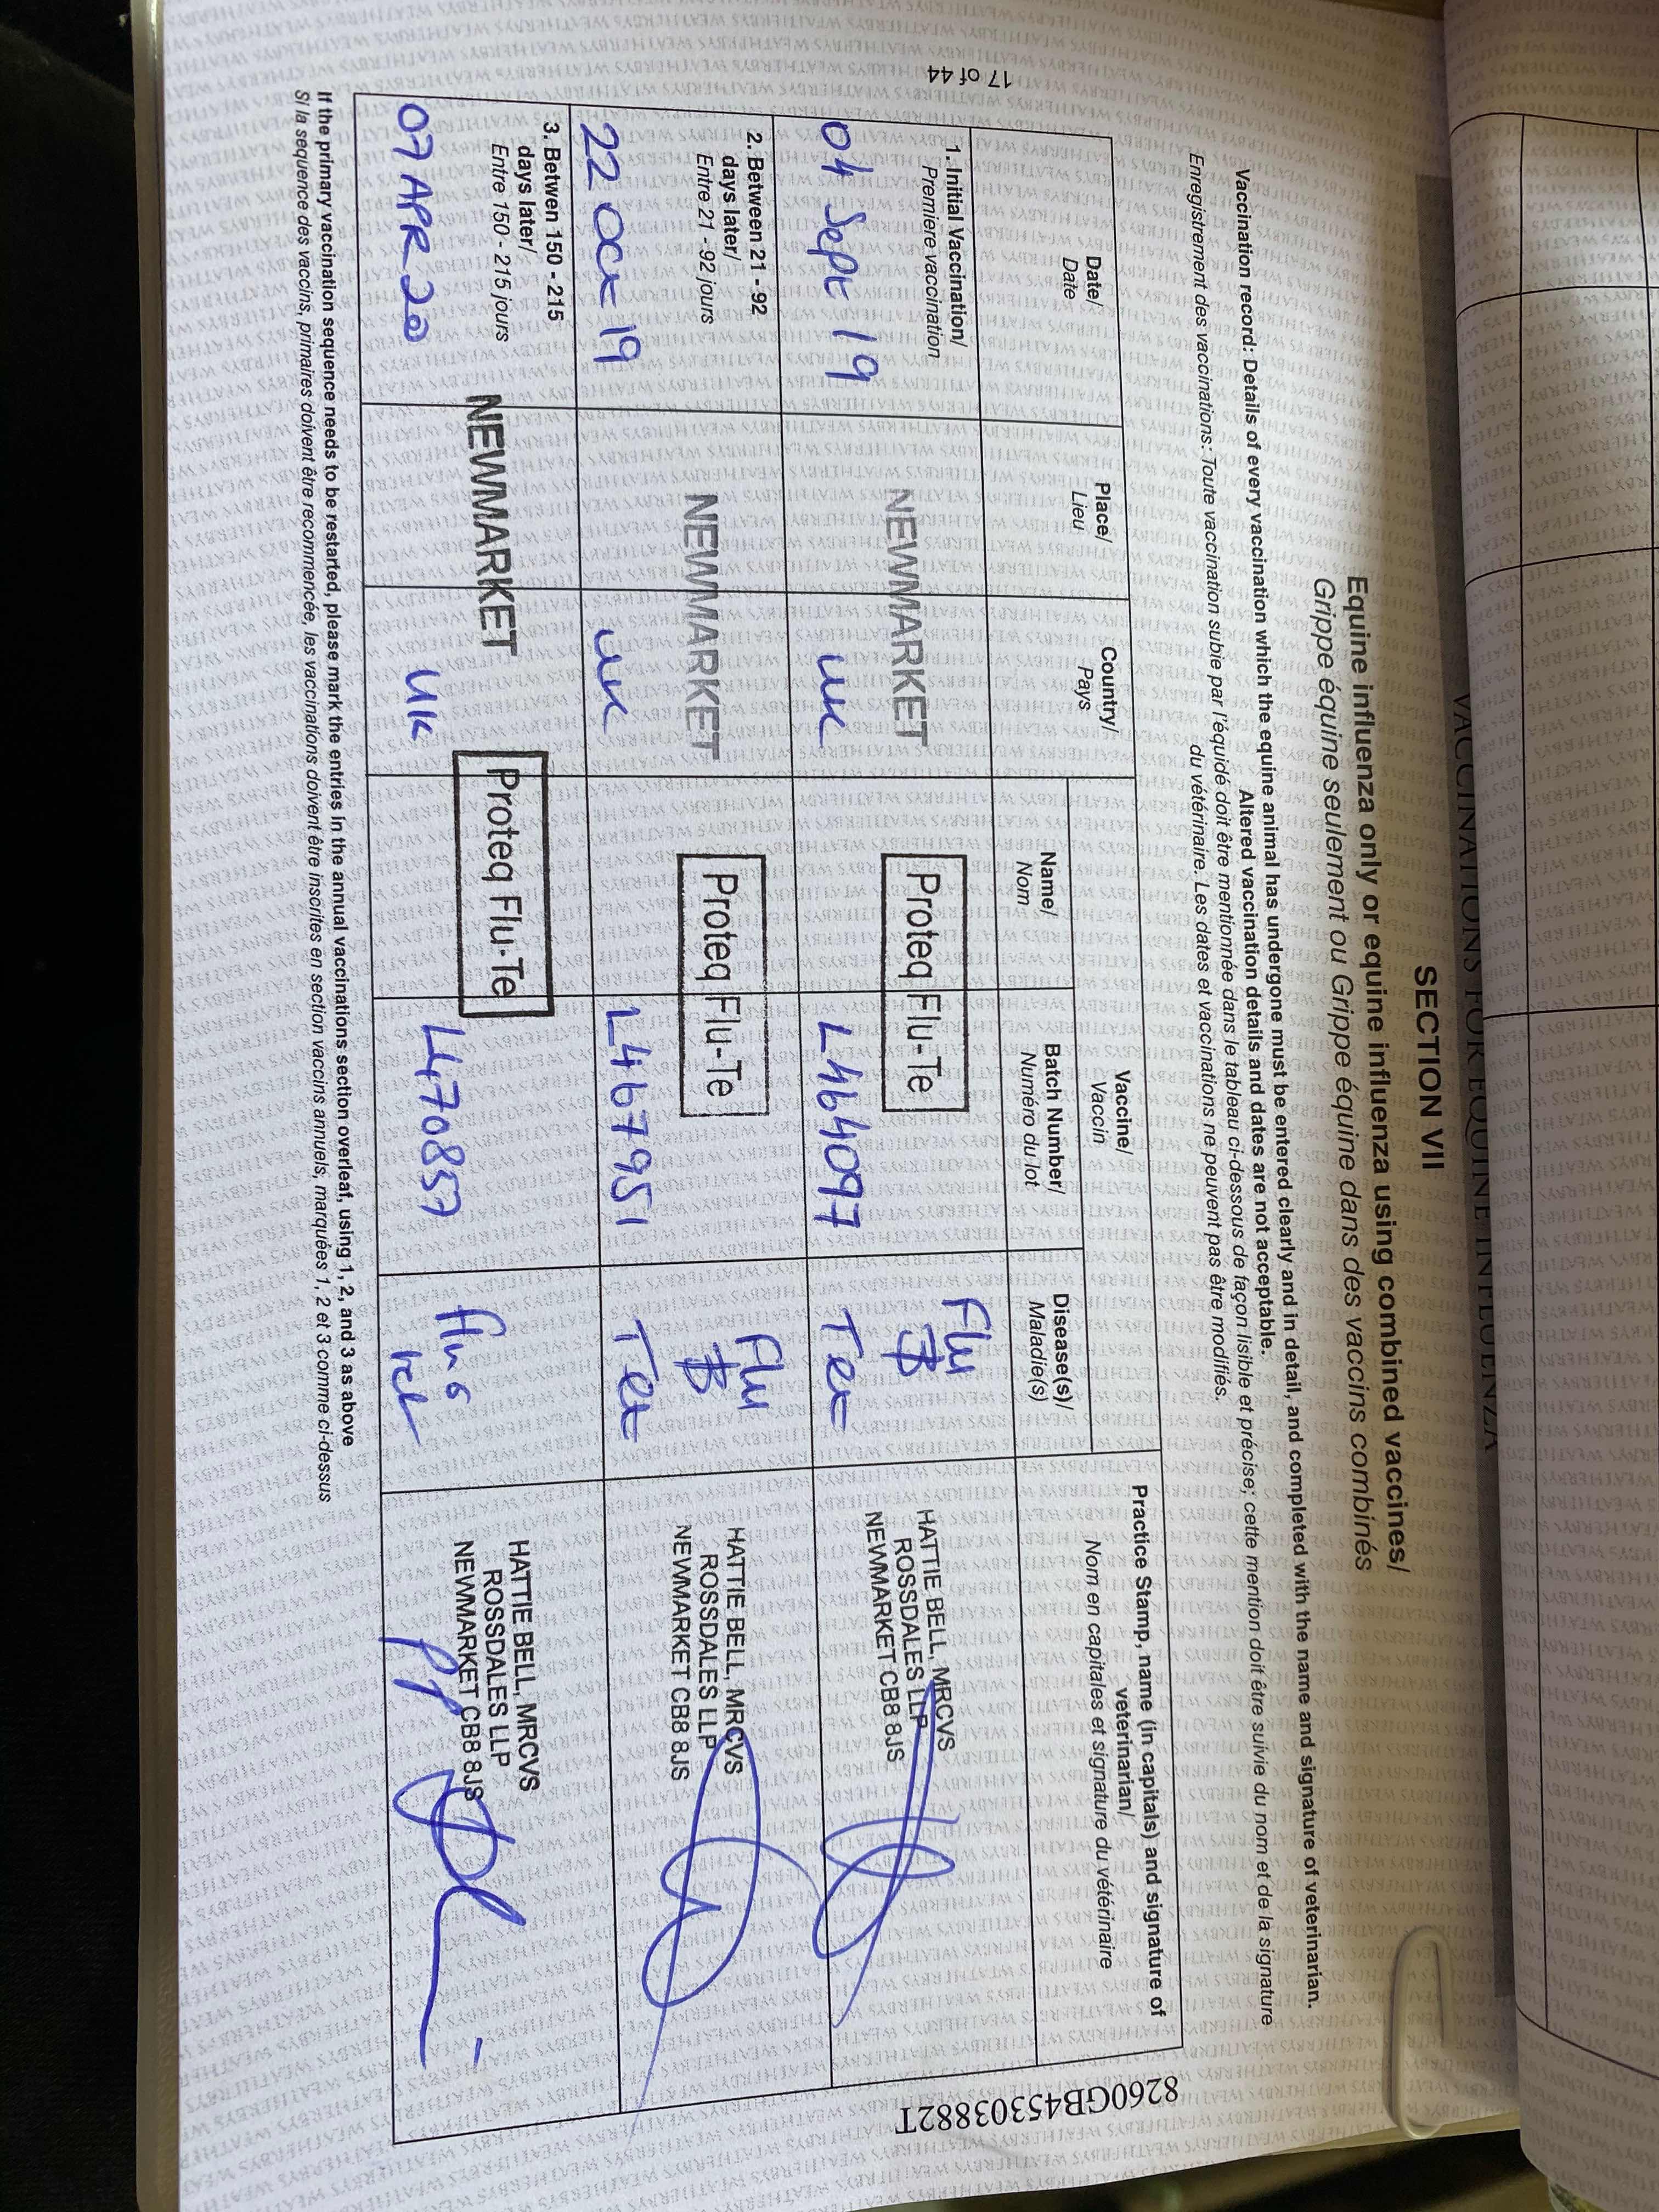 VACCINATIONS FOR EQUINE INFLUENZA
SECTION VII
Equine influenza only or equine influenza using combined vaccines/
Grippe équine seulement ou Grippe équine dans des vaccins combinés
Vaccination record: Details of every vaccination which the equine animal has undergone must be entered clearly and in detail, and completed with the name and signature of veterinarian.
Altered vaccination details and dates are not acceptable.
Enregistrement des vaccinations: Toute vaccination subie par l'équidé doit être mentionnée dans le tableau ci-dessous de façon lisible et précise; cette mention doit être suivie du nom et de la signature
du vétérinaire. Les dates et vaccinations ne peuvent pas être modifiés.
Date/
Date
Place/
Lieu
Country/
Pays
Vaccine/
Vaccin
Name/
Nom
Batch Number/
Numéro du lot
Disease(s)/
Maladie(s)
Practice Stamp, name (in capitals) and signature of
veterinarian/
Nom en capitales et signature du vétérinaire
1. Initial Vaccination/
Premiere vaccination
04 Sept 19
NEWMARKET
UK
Proteq Flu-Te
L464097
Flu
Tet
HATTIE BELL, MRCVS
ROSSDALES LLP
NEWMARKET CB8 8JS
2. Between 21 - 92
days later/
Entre 21 - 92 jours
22 Oct 19
NEWMARKET
UK
Proteq Flu-Te
L467951
Flu
Tet
HATTIE BELL, MRCVS
ROSSDALES LLP
NEWMARKET CB8 8JS
3. Betwen 150 - 215
days later/
Entre 150 - 215 jours
07 APR 20
NEWMARKET
UK
Proteq Flu-Te
L470857
Flu &
tet
HATTIE BELL, MRCVS
ROSSDALES LLP
NEWMARKET CB8 8JS
pp
If the primary vaccination sequence needs to be restarted, please mark the entries in the annual vaccinations section overleaf, using 1, 2, and 3 as above
Si la sequence des vaccins, primaires doivent être recommencée, les vaccinations doivent être inscrites en section vaccins annuels, marquées 1, 2 et 3 comme ci-dessus
17 of 44
8260GB45303882T